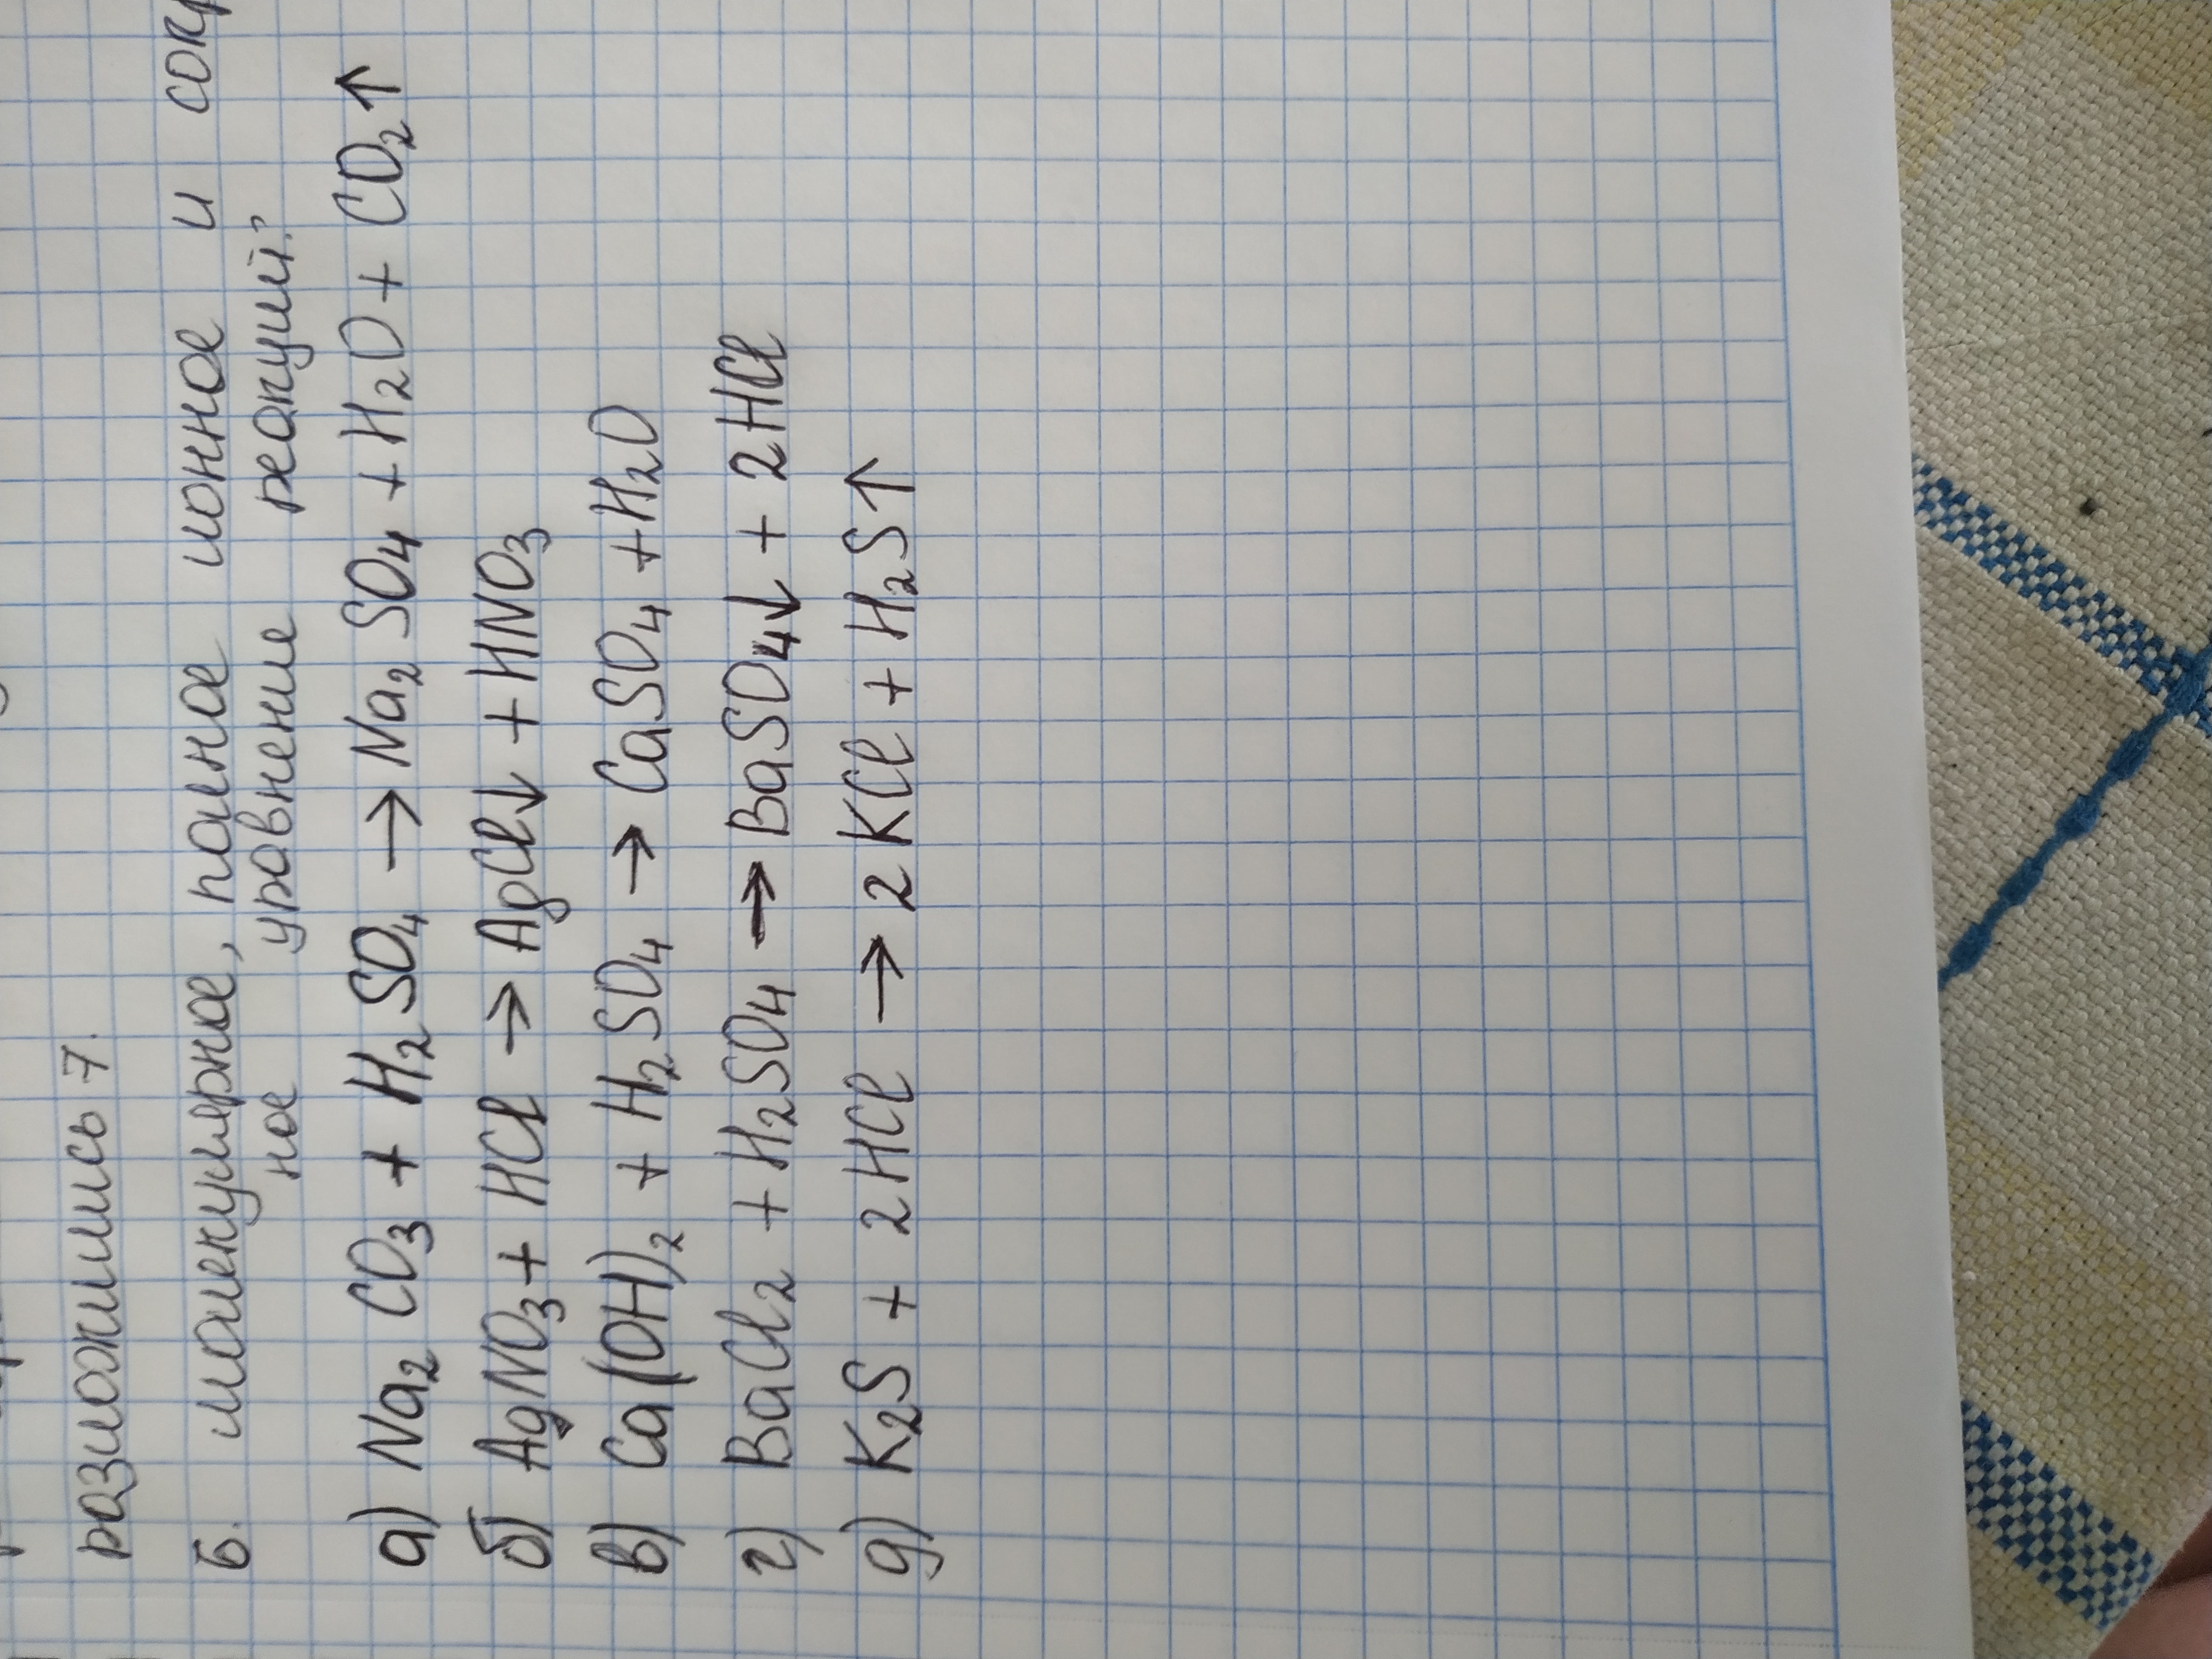 размножились 7.
Б. молекулярное, полное ионное и сокр
ное уравнение реакций?
а) Na₂CO₃ + H₂SO₄ → Na₂SO₄ + H₂O + CO₂↑
б) AgNO₃ + HCl → AgCl↓ + HNO₃
в) Ca(OH)₂ + H₂SO₄ → CaSO₄ + H₂O
г) BaCl₂ + H₂SO₄ → BaSO₄↓ + 2HCl
д) K₂S + 2HCl → 2KCl + H₂S↑